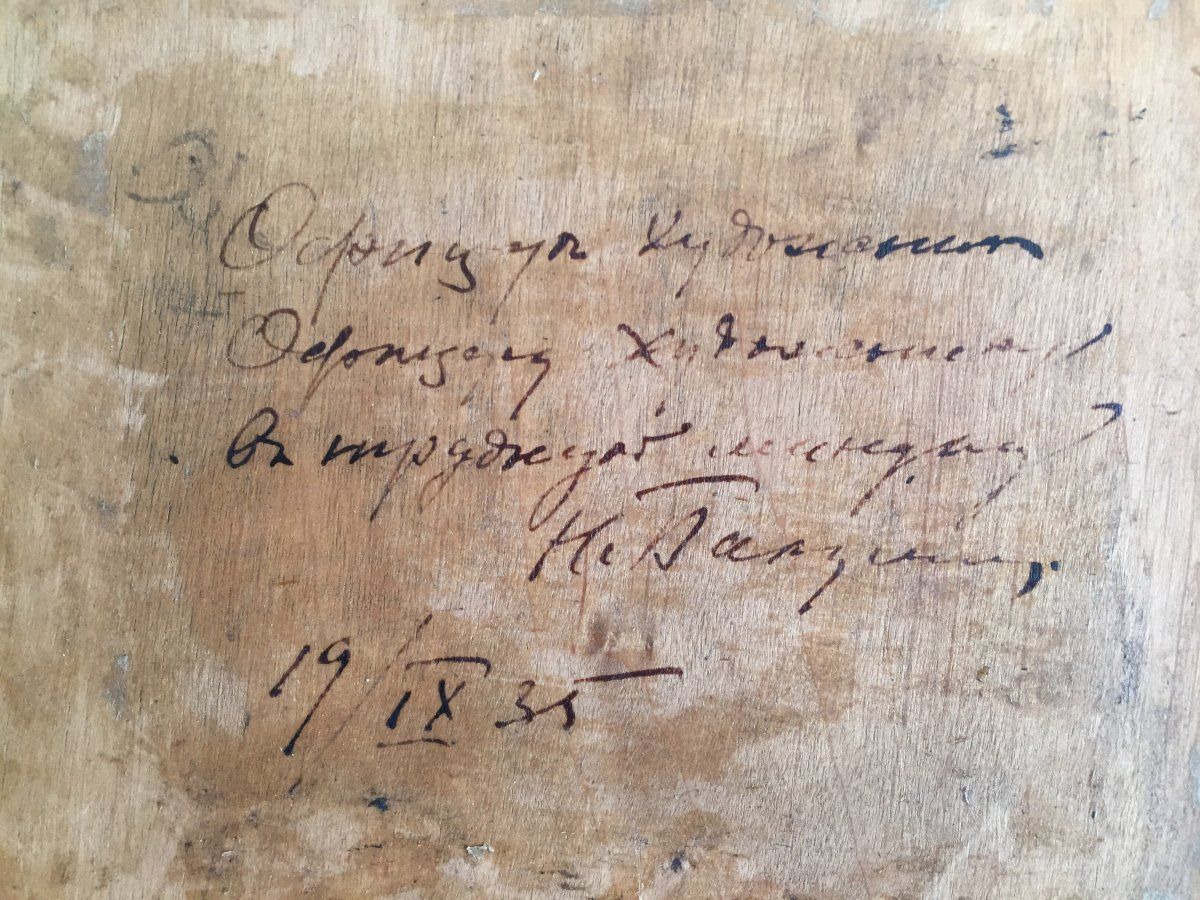 Офицеръ художникъ
Офицеру художнику
въ трудную минуту
Н.
19/IX 35